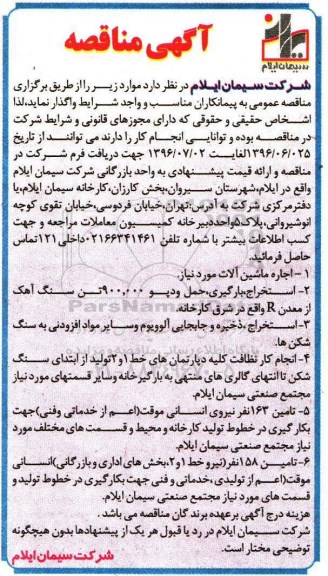 آگهی مناقصه
سیمان ایلام
شرکت سیمان ایلام در نظر دارد موارد زیر را از طریق برگزاری
مناقصه عمومی به پیمانکاران مناسب و واجد شرایط واگذار نماید، لذا
اشخاص حقیقی و حقوقی که دارای مجوزهای قانونی و شرایط شرکت
در مناقصه بوده و توانایی انجام کار را دارند می توانند از تاریخ
۱۳۹۶/۰۶/۲۵ لغایت ۱۳۹۶/۰۷/۰۲ جهت دریافت فرم شرکت در
مناقصه و ارائه قیمت پیشنهادی به واحد بازرگانی شرکت سیمان ایلام
واقع در ایلام،شهرستان سیروان،بخش کارزان،کارخانه سیمان ایلام،یا
دفترمرکزی شرکت به آدرس:تهران،خیابان فردوسی،خیابان تقوی کوچه
انوشیروانی،پلاک۵واحددبیرخانه کمیسیون معاملات مراجعه و جهت
کسب اطلاعات بیشتر با شماره تلفن ۰۲۱۶۶۳۴۱۴۶۱داخلی۱۲۱تماس
حاصل فرمائید.
۱-اجاره ماشین آلات مورد نیاز.
۲- استخراج،بارگیری،حمل ودپو ۹۰۰،۰۰۰تن سنگ آهک
از معدن R واقع در شرق کارخانه.
۳-استخراج،ذخیره و جابجایی آلوویوم وسایر مواد افزودنی به سنگ
شکن ها.
۴-انجام کار نظافت کلیه دپارتمان های خط ۱و۲تولید از ابتدای سنگ
شکن تاانتهای گالری های منتهی به بارگیرخانه وسایر قسمتهای مورد نیاز
مجتمع صنعتی سیمان ایلام.
۵- تامین ۱۶۳نفر نیروی انسانی موقت(اعم از خدماتی وفنی)جهت
بکار گیری در خطوط تولید کارخانه و محیط و قسمت های مختلف مورد
نیاز مجتمع صنعتی سیمان ایلام.
۶-تامین ۱۵۸نفر(نیرو خط۱و۲،بخش های اداری و بازرگانی)انسانی
موقت(اعم از تولیدی ،خدماتی و فنی جهت بکارگیری در خطوط تولید و
قسمت های مورد نیاز مجتمع صنعتی سیمان ایلام.
هزینه درج آگهی برعهده برنده گان مناقصه می باشد .
شرکت سیمان ایلام در رد یا قبول هر یک از پیشنهادها بدون هیچگونه
توضیحی مختار است.
شرکت سیمان ایلام